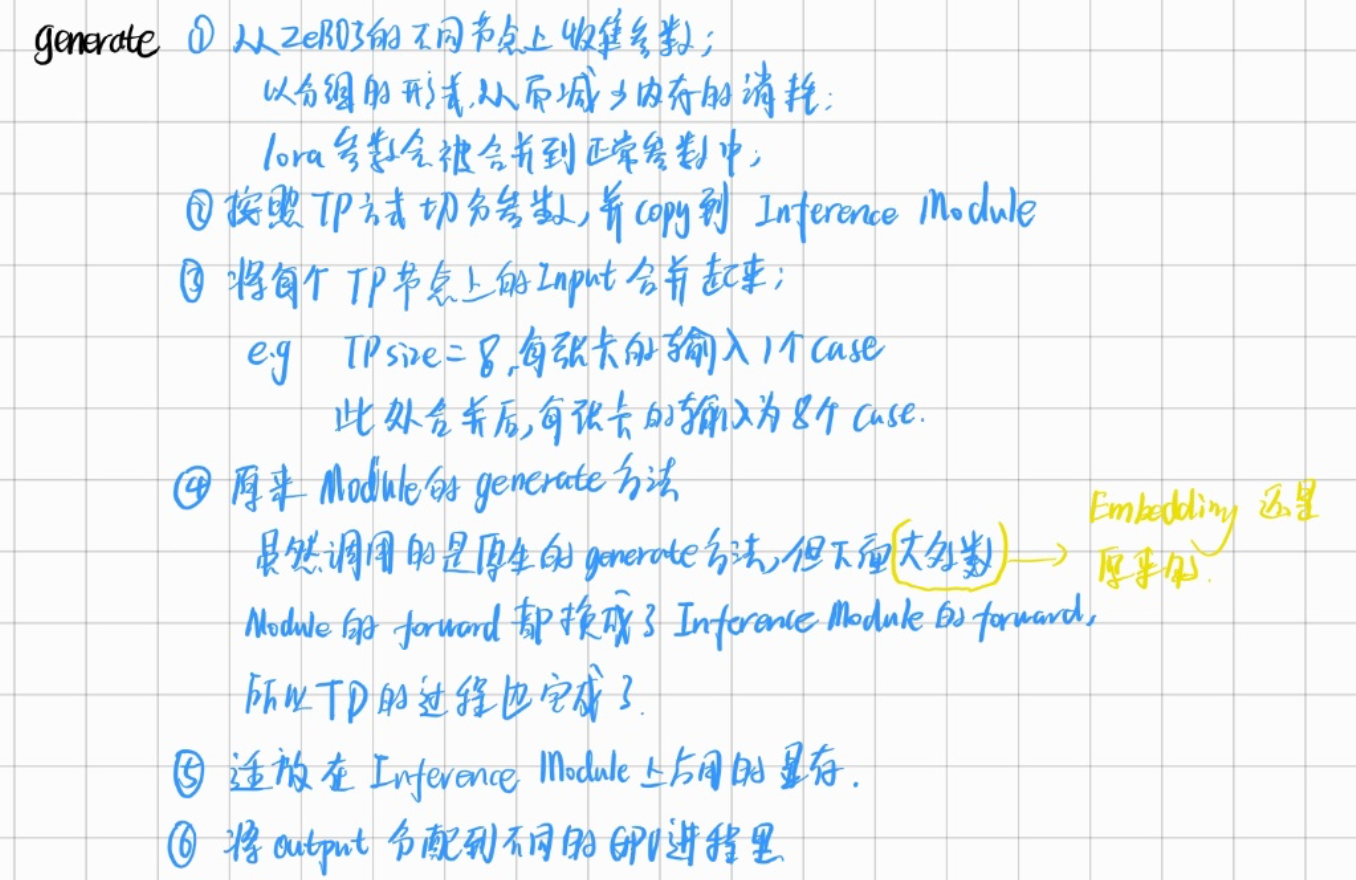 generate ① 从ZeRO3的不同节点上收集参数;
以分组的形式,从而减少内存的消耗;
lora参数会被合并到正常参数中;
② 按照TP方式切分参数,并copy到 Inference Module
③ 将每个TP节点上的Input合并起来;
e.g TPsize=8,每张卡的输入1个case
此处合并后,每张卡的输入为8个case.
④ 原来Module的generate方法
虽然调用的是原生的generate方法,但下面大多数 → Embedding 还是
原来的.
Module的forward都换成了Inference Module的forward,
所以TP的过程也完成了.
⑤ 释放在Inference Module上占用的显存.
⑥ 将output分配到不同的GPU进程里